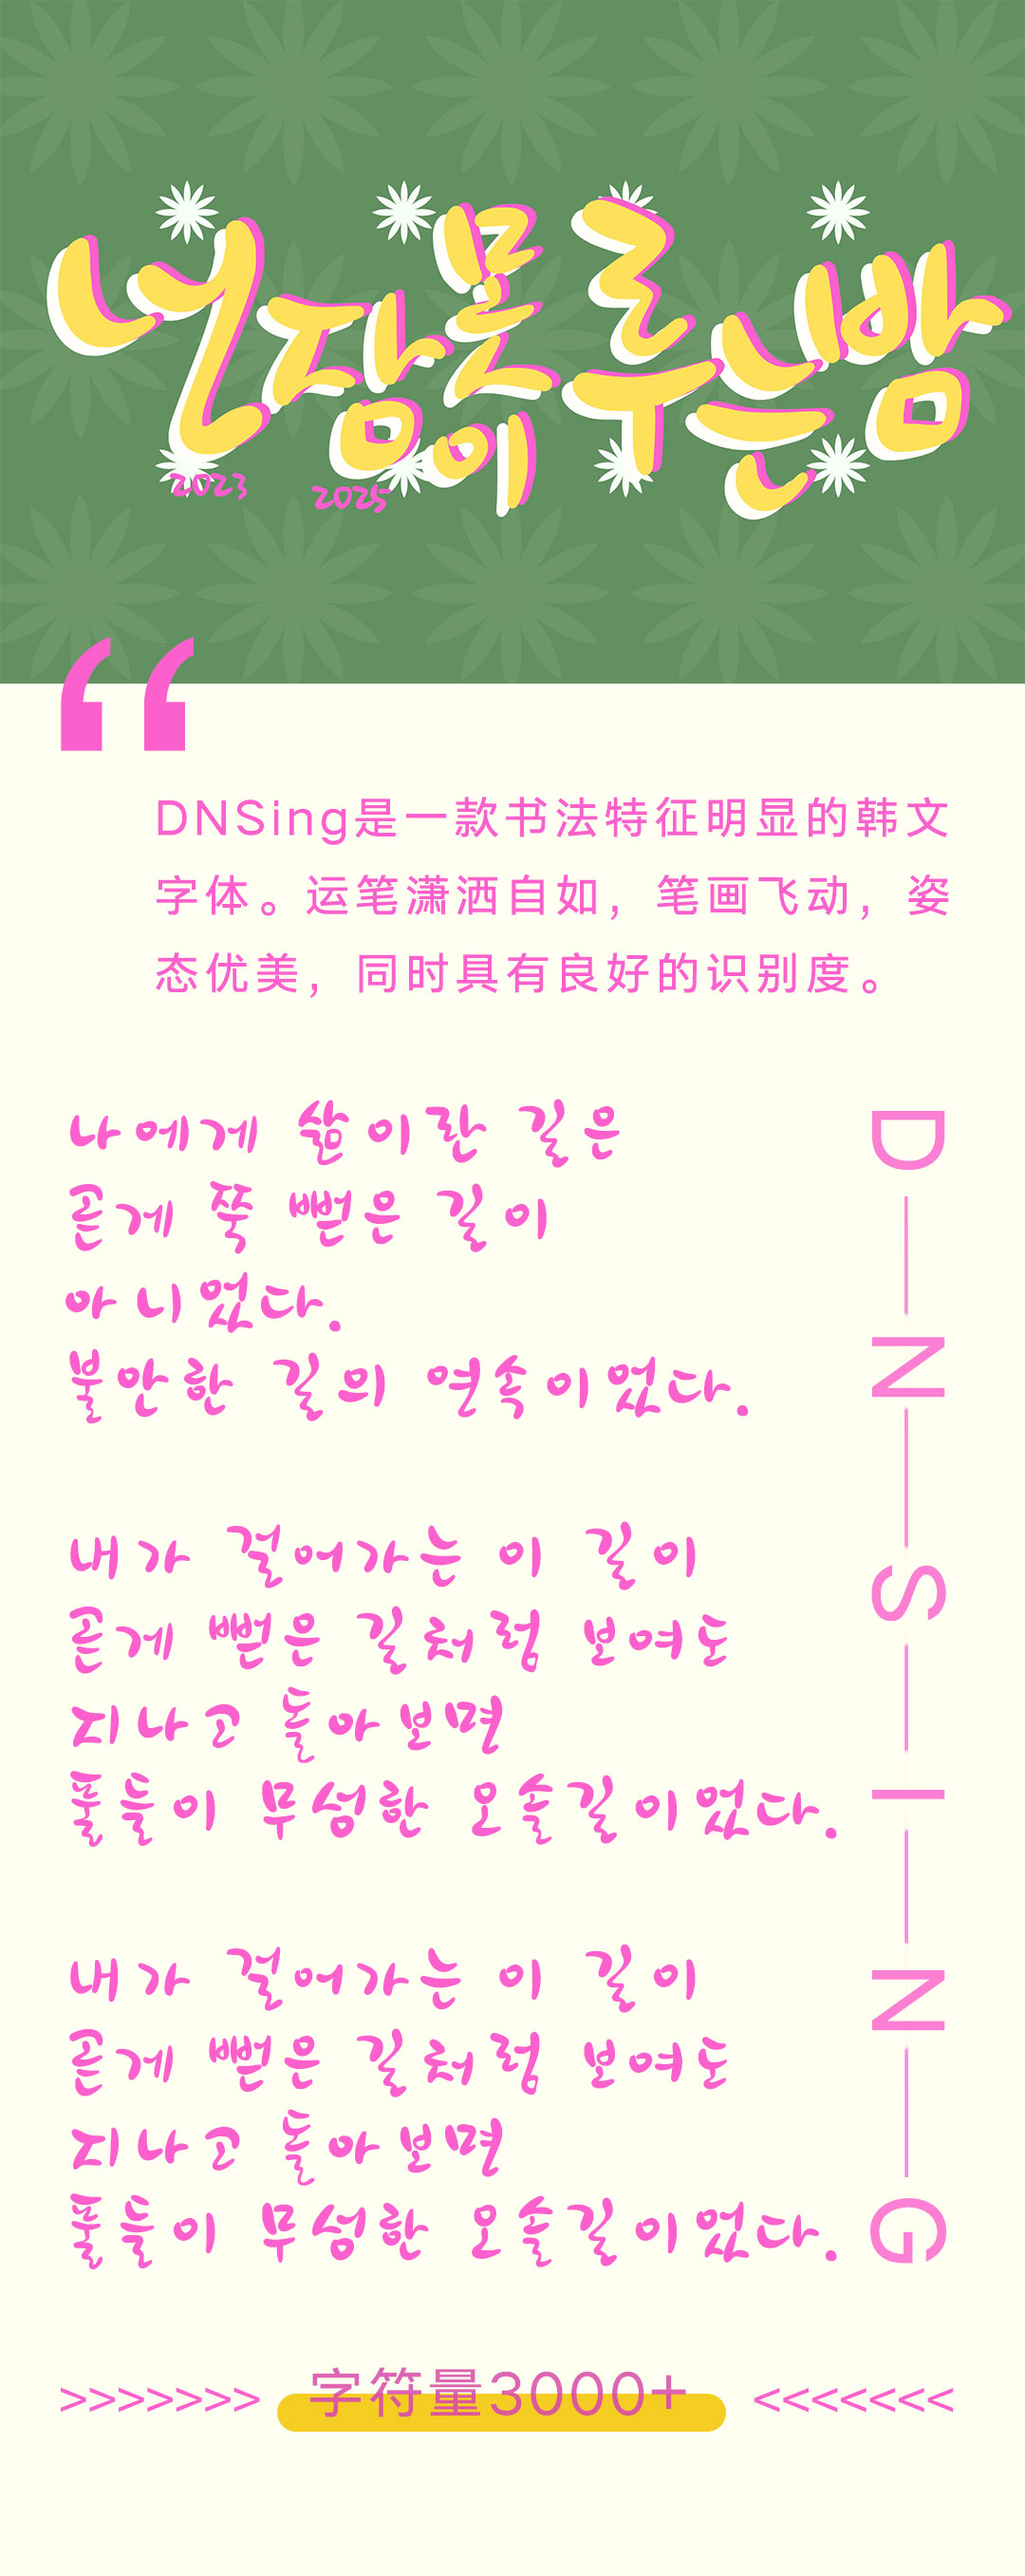 너 잠 못 이루는 밤
2023
2025
“
DNSing是一款书法特征明显的韩文
字体。运笔潇洒自如，笔画飞动，姿
态优美，同时具有良好的识别度。
나에게 삶이란 길은
곧게 쭉 뻗은 길이
아니었다.
불안한 길의 연속이었다.
내가 걸어가는 이 길이
곧게 뻗은 길처럼 보여도
지나고 돌아보면
풀들이 무성한 오솔길이었다.
내가 걸어가는 이 길이
곧게 뻗은 길처럼 보여도
지나고 돌아보면
풀들이 무성한 오솔길이었다.
D—N—S—I—N—G
>>>>>>> 字符量3000+ <<<<<<<